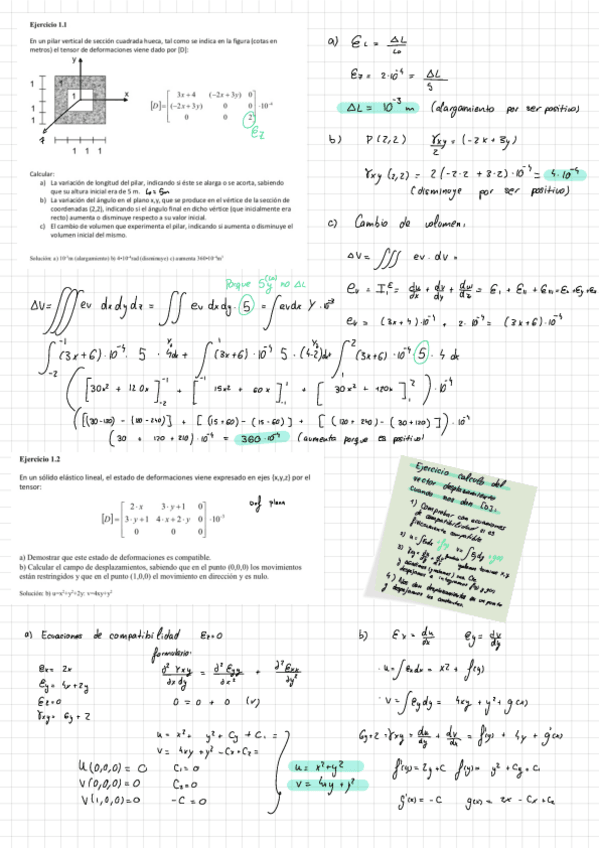 Ejercicio 1.1
En un pilar vertical de sección cuadrada hueca, tal como se indica en la figura (cotas en
metros) el tensor de deformaciones viene dado por [D]:
y
1
1
1
1
1
x
z
1 1 1
[D] = [3x + 4 (−2x + 3y) 0
(−2x + 3y) 0 0
0 0 2] ·10⁻⁴
ε_z
Calcular:
a) La variación de longitud del pilar, indicando si éste se alarga o se acorta, sabiendo
que su altura inicial era de 5 m. L₀ = 5m
b) La variación del ángulo en el plano x,y, que se produce en el vértice de la sección de
coordenadas (2,2), indicando si el ángulo final en dicho vértice (que inicialmente era
recto) aumenta o disminuye respecto a su valor inicial.
c) El cambio de volumen que experimenta el pilar, indicando si aumenta o disminuye el
volumen inicial del mismo.
Solución: a) 10⁻³m (alargamiento) b) 4•10⁻⁴rad (disminuye) c) aumenta 360•10⁻⁴m³
a) ε_L = ΔL / L₀
ε_z = 2·10⁻⁴ = ΔL / 5
ΔL = 10⁻³ m (alargamiento por ser positivo)
b) P(2,2) γxy / 2 = (−2x + 3y)
γxy (2,2) = 2(−2·2 + 3·2)·10⁻⁴ = 4·10⁻⁴
(disminuye por ser positivo)
c) Cambio de volumen:
ΔV = ∭ ev · dv =
ev = I₁ᴱ = du/dx + dv/dy + dw/dz = ε₁ + ε₂ + ε₃ = εx + εy + εz
ev = (3x+4)·10⁻⁴ + 2·10⁻⁴ = (3x+6)·10⁻⁴
Porque no ΔL
ΔV = ∭ ev dx dy dz = ∬ ev dx dy · 5 = ∫ ev dx Y · 10⁻⁴
∫₋₂⁻¹ (3x+6)·10⁻⁴ · 5 · 4 dx + ∫₋₁¹ (3x+6)·10⁻⁴ 5 · (4-2) dx + ∫₁² (3x+6)·10⁻⁴ 5 · 4 dx
([30x² + 120x]₋₂⁻¹ + [15x² + 60x]₋₁¹ + [30x² + 120x]₁²)·10⁻⁴
([(30-120) − (120-240)] + [(15+60) − (15-60)] + [(120+240) − (30+120)])·10⁻⁴
(30 + 120 + 210)·10⁻⁴ = 360·10⁻⁴ (aumenta porque es positivo)
Ejercicio 1.2
En un sólido elástico lineal, el estado de deformaciones viene expresado en ejes (x,y,z) por el
tensor:
[D] = [2·x 3·y+1 0
3·y+1 4·x+2·y 0
0 0 0] ·10⁻³
def plana
a) Demostrar que este estado de deformaciones es compatible.
b) Calcular el campo de desplazamientos, sabiendo que en el punto (0,0,0) los movimientos
están restringidos y que en el punto (1,0,0) el movimiento en dirección y es nulo.
Solución: b) u=x²+y²+2y: v=4xy+y²
Ejercicio calculo del
vector desplazamiento
cuando nos dan [D].
1) Comprobar con ecuaciones
de compatibilidad si es
físicamente compatible
a) Ecuaciones de compatibilidad εz=0
formulario:
εx = 2x
εy = 4x+2y
εz = 0
γxy = 6y + 2
∂²γxy / ∂x∂y = ∂²εyy / ∂x² + ∂²εxx / ∂y²
0 = 0 + 0 (v)
u = x² + y² + Cy + C₁ =
v = 4xy + y² − Cx + C₂ =
U(0,0,0) = 0 C₁ = 0
V(0,0,0) = 0 C₂ = 0
V(1,0,0) = 0 −C = 0
u = x² + y²
v = 4xy + y²
b) εx = du/dx εy = dv/dy
· u = ∫ εx dx = x² + f(y)
· v = ∫ εy dy = 4xy + y² + g(x)
6y + 2 = γxy = du/dy + dv/dx = f'(y) + 4y + g'(x)
f'(y) = 2y + C f(y) = y² + Cy + C₁
g'(x) = −C g(x) = 2x − Cx + C₂